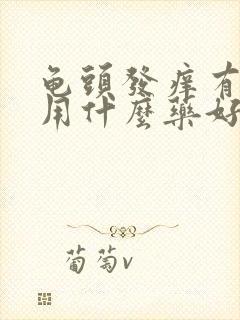 龟頭發癢有
用什麼藥好
葡萄v